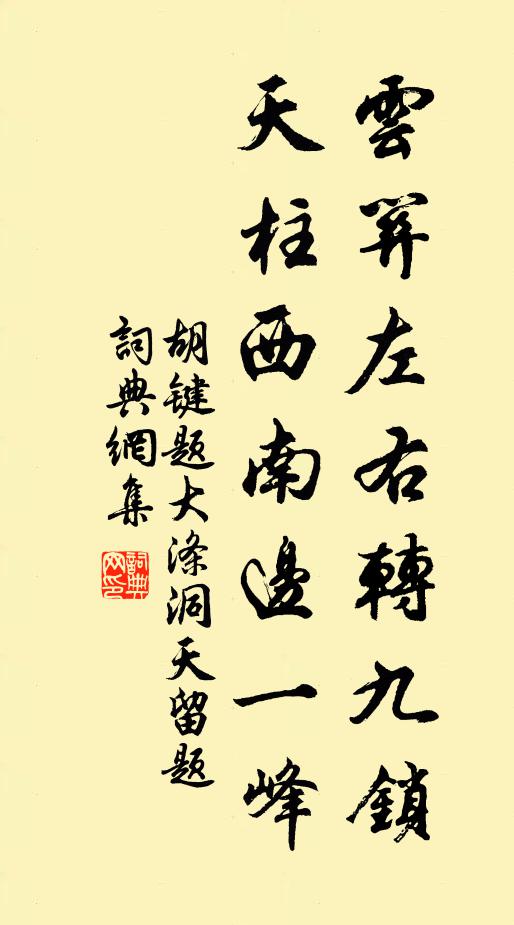 雲開左右轉九鎖
天柱西南邊一峰
胡键题大涤洞天留题
詞典網集
詞典网印